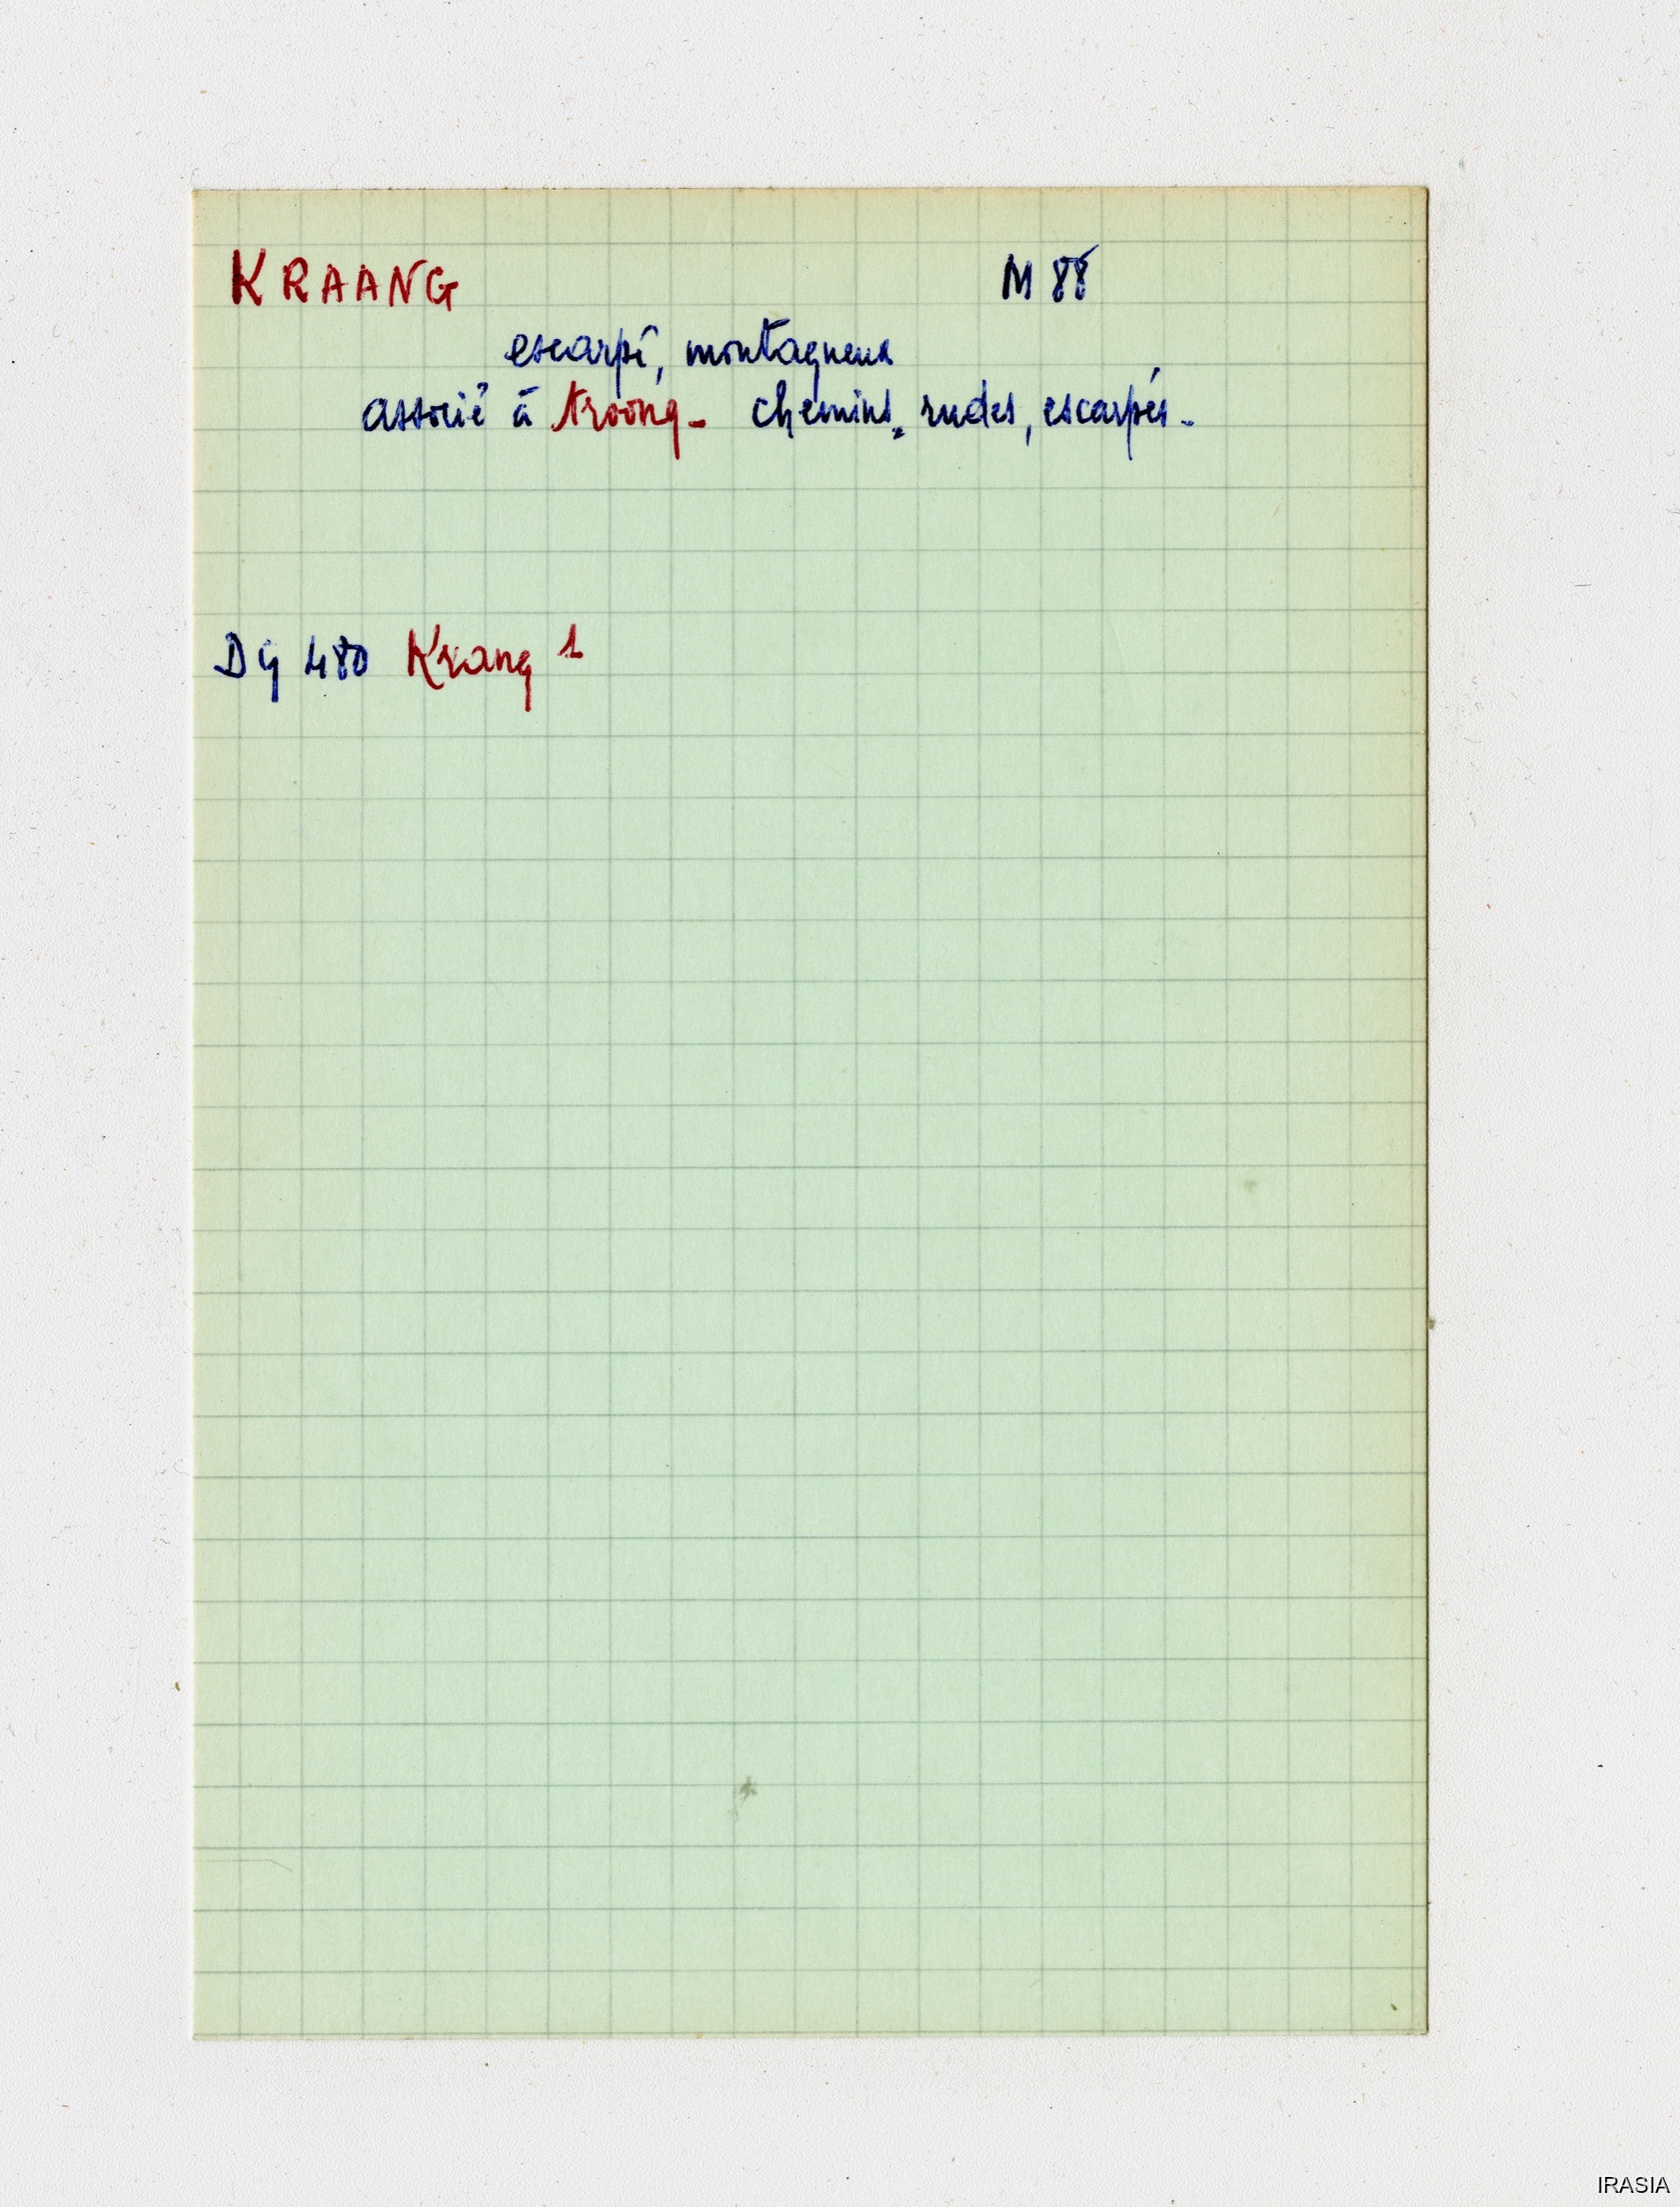 KRAANG M 88
escarpé, montagneux
associé à troong - chemins, rudes, escarpés -
DG 480 Krang 1
IRASIA